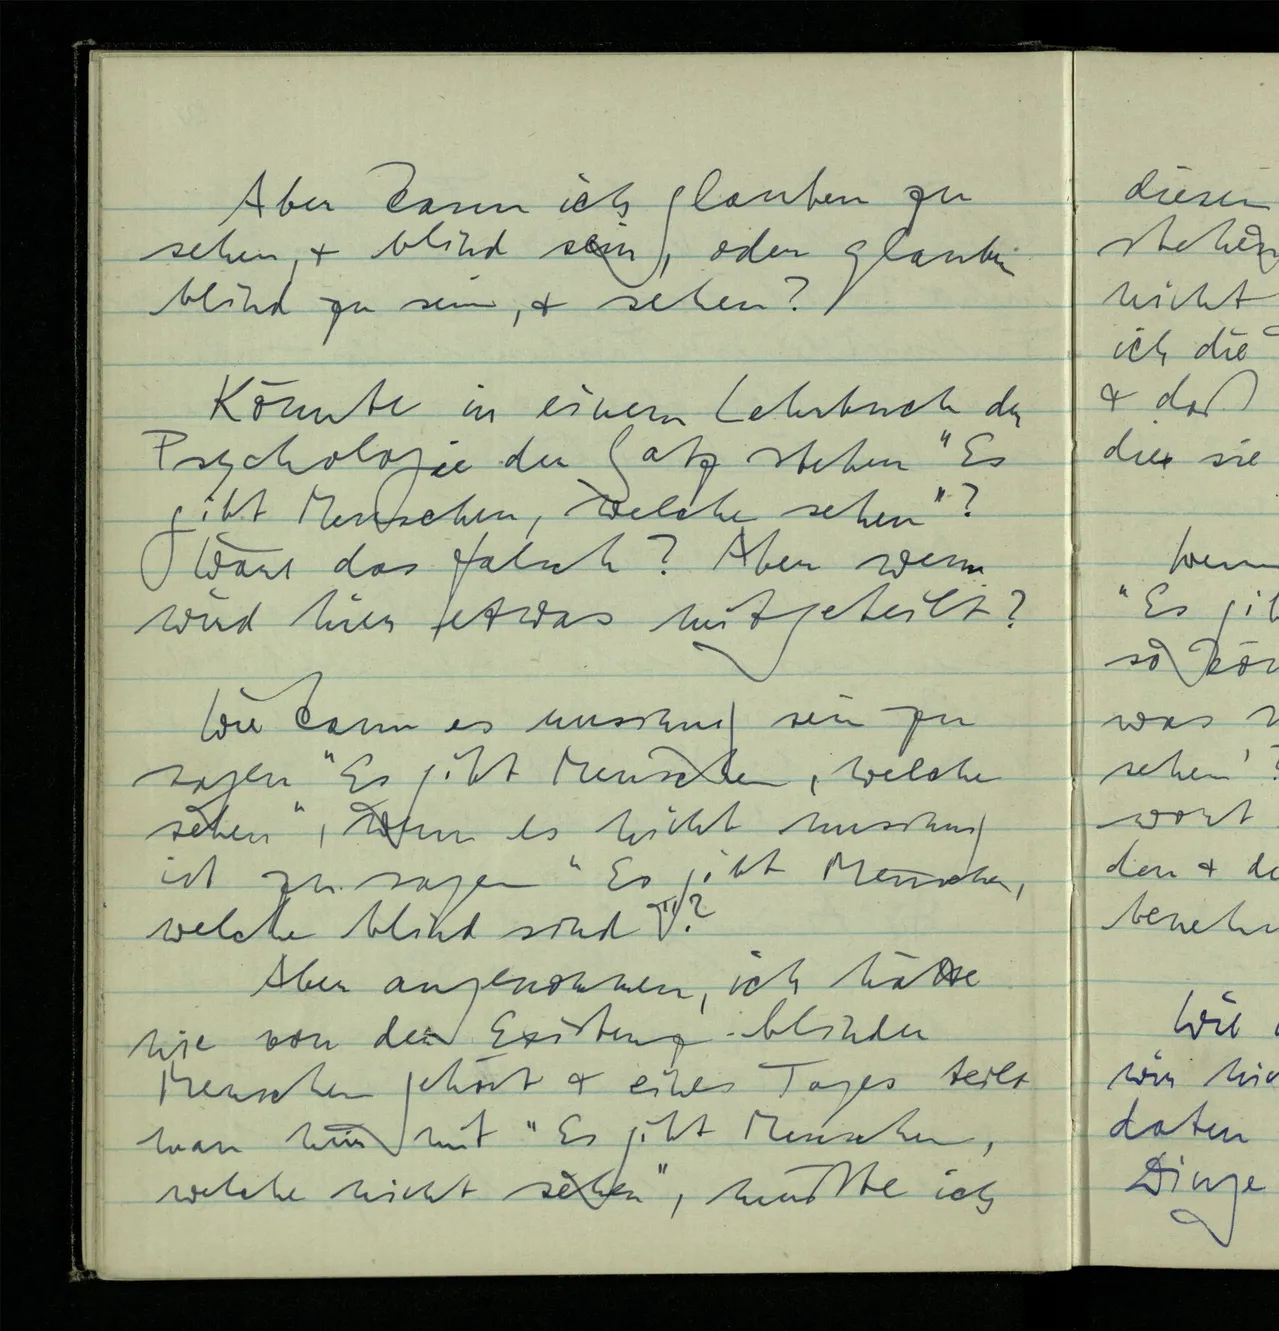 Aber kann ich glauben zu
sehen, & blind sein, oder glauben
blind zu sein, & sehen?
Könnte in einem Lehrbuch der
Psychologie der Satz stehen "Es
gibt Menschen, welche sehen"?
Wäre das falsch? Aber wem
wird hier etwas mitgeteilt?
Wie kann es unsinnig sein zu
sagen "Es gibt Menschen, welche
sehen", wenn es nicht unsinnig
ist zu sagen "Es gibt Menschen,
welche blind sind"?
Aber angenommen, ich hätte
nie von der Existenz blinder
Menschen gehört & eines Tages teilt
man mir mit "Es gibt Menschen,
welche nicht sehen", müßte ich
diesen
stehen
nicht
ich die
& daß
die sie
Wenn
"Es gib
so kön
was
sehen'?
wort
den & de
benehm
Wie
wir
daten
Dinge